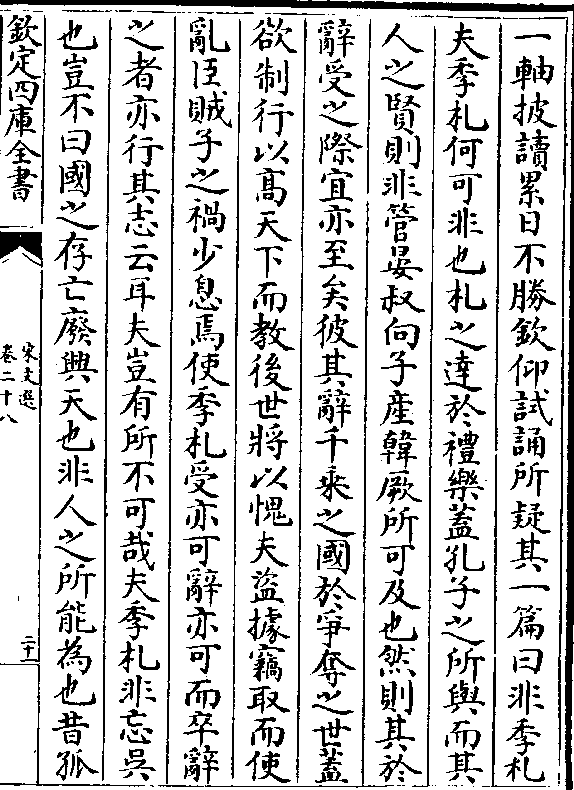 一軸披讀累日不勝欽仰試誦所疑其一篇曰非季札
夫季札何可非也札之達於禮樂蓋孔子之所與而其
人之賢則非管晏叔向子產韓厥所可及也然則其於
辭受之際宜亦至矣彼其辭千乘之國於爭奪之世蓋
欲制行以高天下而教後世將以愧夫盜據竊取而使
亂臣賊子之禍少息焉使季札受亦可辭亦可而卒辭
之者亦行其志云耳夫豈有所不可哉夫季札非忘吳
也豈不曰國之存亡廢興天也非人之所能為也昔孤
欽定四庫全書
宋文選
卷二十八
二十一